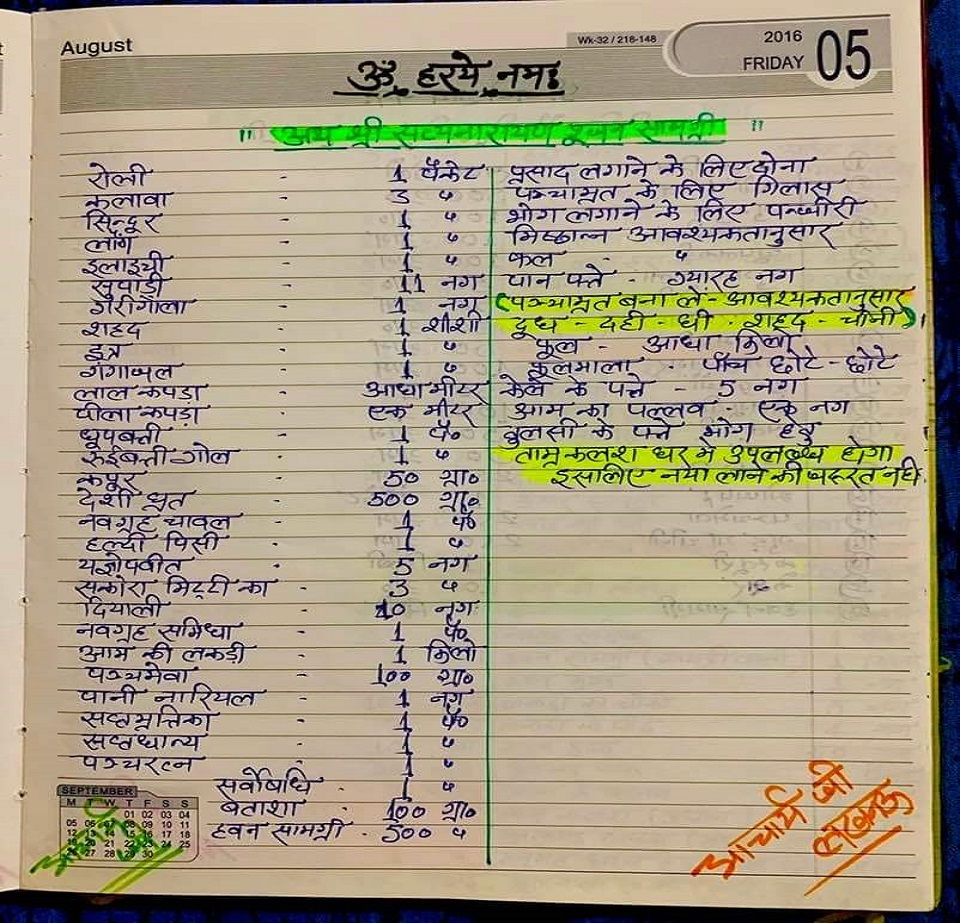 August
Wk-32 / 218-148
2016
FRIDAY
05
ॐ हरये नमः
" अथ श्री सत्यनारायण पूजन सामग्री "
रोली - 1 पैकेट
कलावा - 3 "
सिन्दूर - 1 "
लौंग - 1 "
इलाइची - 1 "
सुपाड़ी - 11 नग
गरीगोला - 1 नग
शहद - 1 शीशी
इत्र - 1 "
गंगाजल - 1 "
लाल कपड़ा - आधा मीटर
पीला कपड़ा - एक मीटर
धूपबत्ती - 1 पै०
रुईबत्ती गोल - 1 "
कपूर - 50 ग्रा०
देशी घृत - 500 ग्रा०
नवग्रह चावल - 1 पै०
हल्दी पिसी - 1 "
यज्ञोपवीत - 5 नग
सकोरा मिट्टी का - 3 "
दियाली - 10 नग
नवग्रह समिधा - 1 पै०
आम की लकड़ी - 1 किलो
पञ्चमेवा - 100 ग्रा०
पानी नारियल - 1 नग
सप्तमृत्तिका - 1 पै०
सप्तधान्य - 1 "
पञ्चरत्न - 1 "
सर्वोषधि - 1 "
बताशा - 100 ग्रा०
हवन सामग्री - 500 "
प्रसाद लगाने के लिए दोना
पञ्चामृत के लिए गिलास
भोग लगाने के लिए पन्जीरी
मिष्ठान्न आवश्यकतानुसार
फल - "
पान पत्ते - ग्यारह नग
(पञ्चामृत बना ले - आवश्यकतानुसार
दूध - दही - घी - शहद - चीनी)
फूल - आधा किलो
फूलमाला - पाँच छोटे - छोटे
केले के पत्ते - 5 नग
आम का पल्लव - एक नग
तुलसी के पत्ते भोग हेतु
ताम्र कलश घर में उपलब्ध होगा
इसलिए नया लाने की जरूरत नही
SEPTEMBER
M T W T F S S
01 02 03 04
05 06 07 08 09 10 11
12 13 14 15 16 17 18
19 20 21 22 23 24 25
26 27 28 29 30
आचार्य जी
लखनऊ